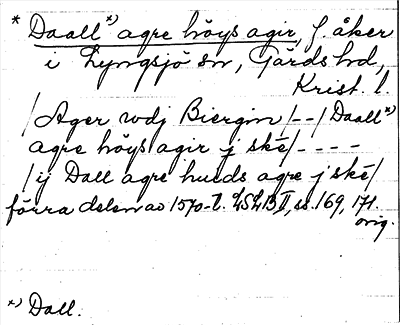 * Daall*) agre höys agir, f. åker
i Lyngsjö sn, Gärds hd,
Krist. l.
/Ager wdj Biergin/--/Daall*)
agre höys agir j ske/----
/ij Dall agre hueds agre j ske/
förra delen av 1570-t. LSLB II, ss. 169, 171.
orig.
*) Dall.